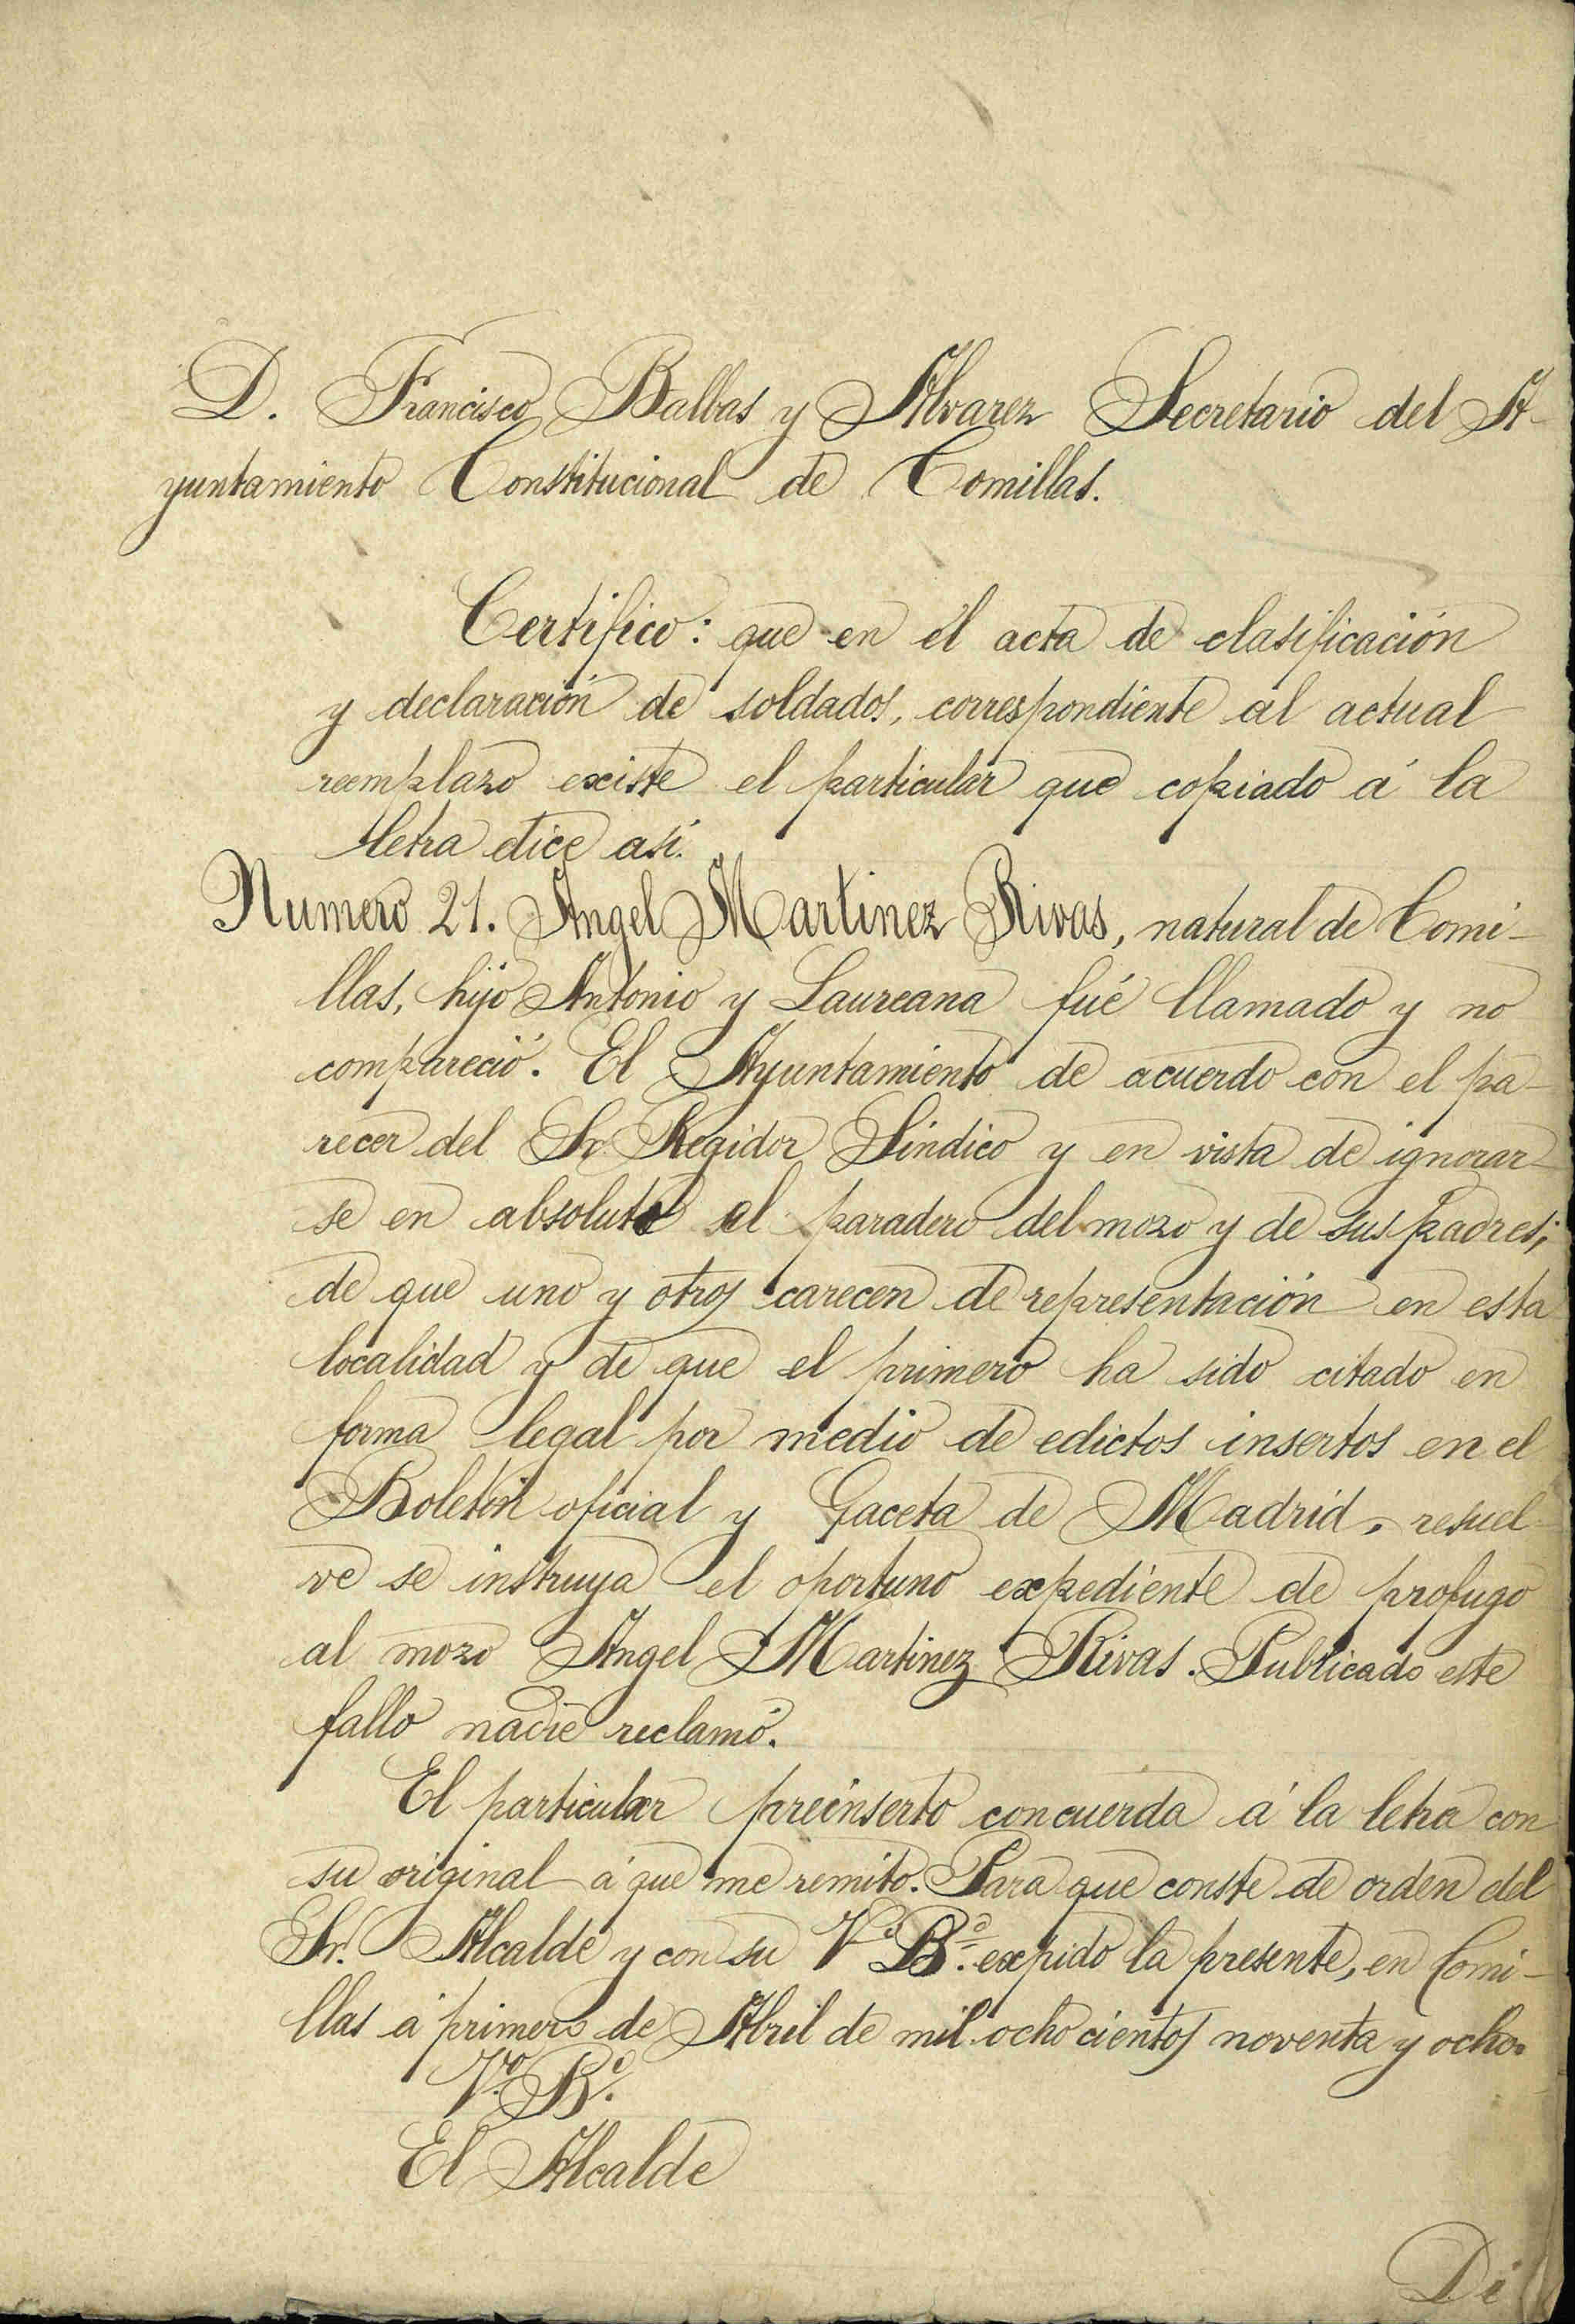 D. Francisco Balbas y Alvarez Secretario del A-
yuntamiento Constitucional de Comillas.
Certifico: que en el acta de clasificación
y declaración de soldados, correspondiente al actual
reemplazo existe el particular que copiado á la
letra dice asi.
Numero 21. Angel Martinez Rivas, natural de Comi-
llas, hijo Antonio y Laureana fué llamado y no
compareció. El Ayuntamiento de acuerdo con el pa-
recer del Sr. Regidor Sindico y en vista de ignorar-
se en absoluto el paradero del mozo y de sus padres;
de que uno y otros carecen de representación en esta
localidad y de que el primero ha sido citado en
forma legal por medio de edictos insertos en el
Boletin oficial y Gaceta de Madrid, resuel-
ve se instruya el oportuno expediente de profugo
al mozo Angel Martinez Rivas. Publicado este
fallo nadie reclamó.
El particular preinserto concuerda á la letra con
su original á que me remito. Para que conste de orden del
Sr. Alcalde y con su V.º B.º expido la presente, en Comi-
llas á primero de Abril de mil ochocientos noventa y ocho.
V.º B.º
El Alcalde
Di